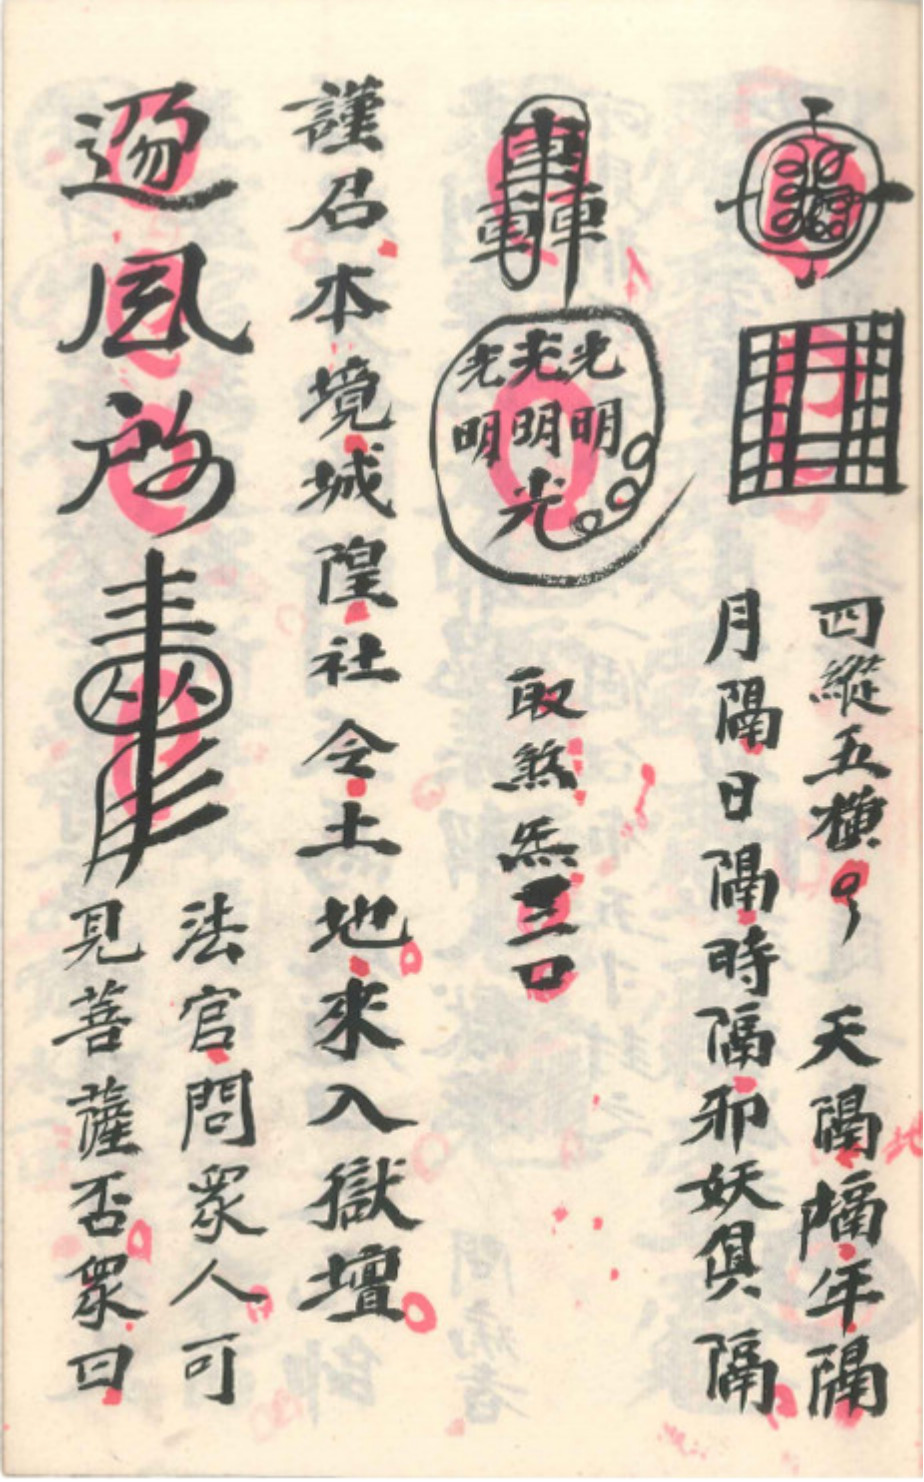 四縱五橫 天隔隔年隔
月隔日隔時隔邪妖俱隔
車車車
光光光
明明明
光
取煞炁三口
謹召本境城隍社令土地來入獄壇
法官問眾人可
見菩薩否眾曰